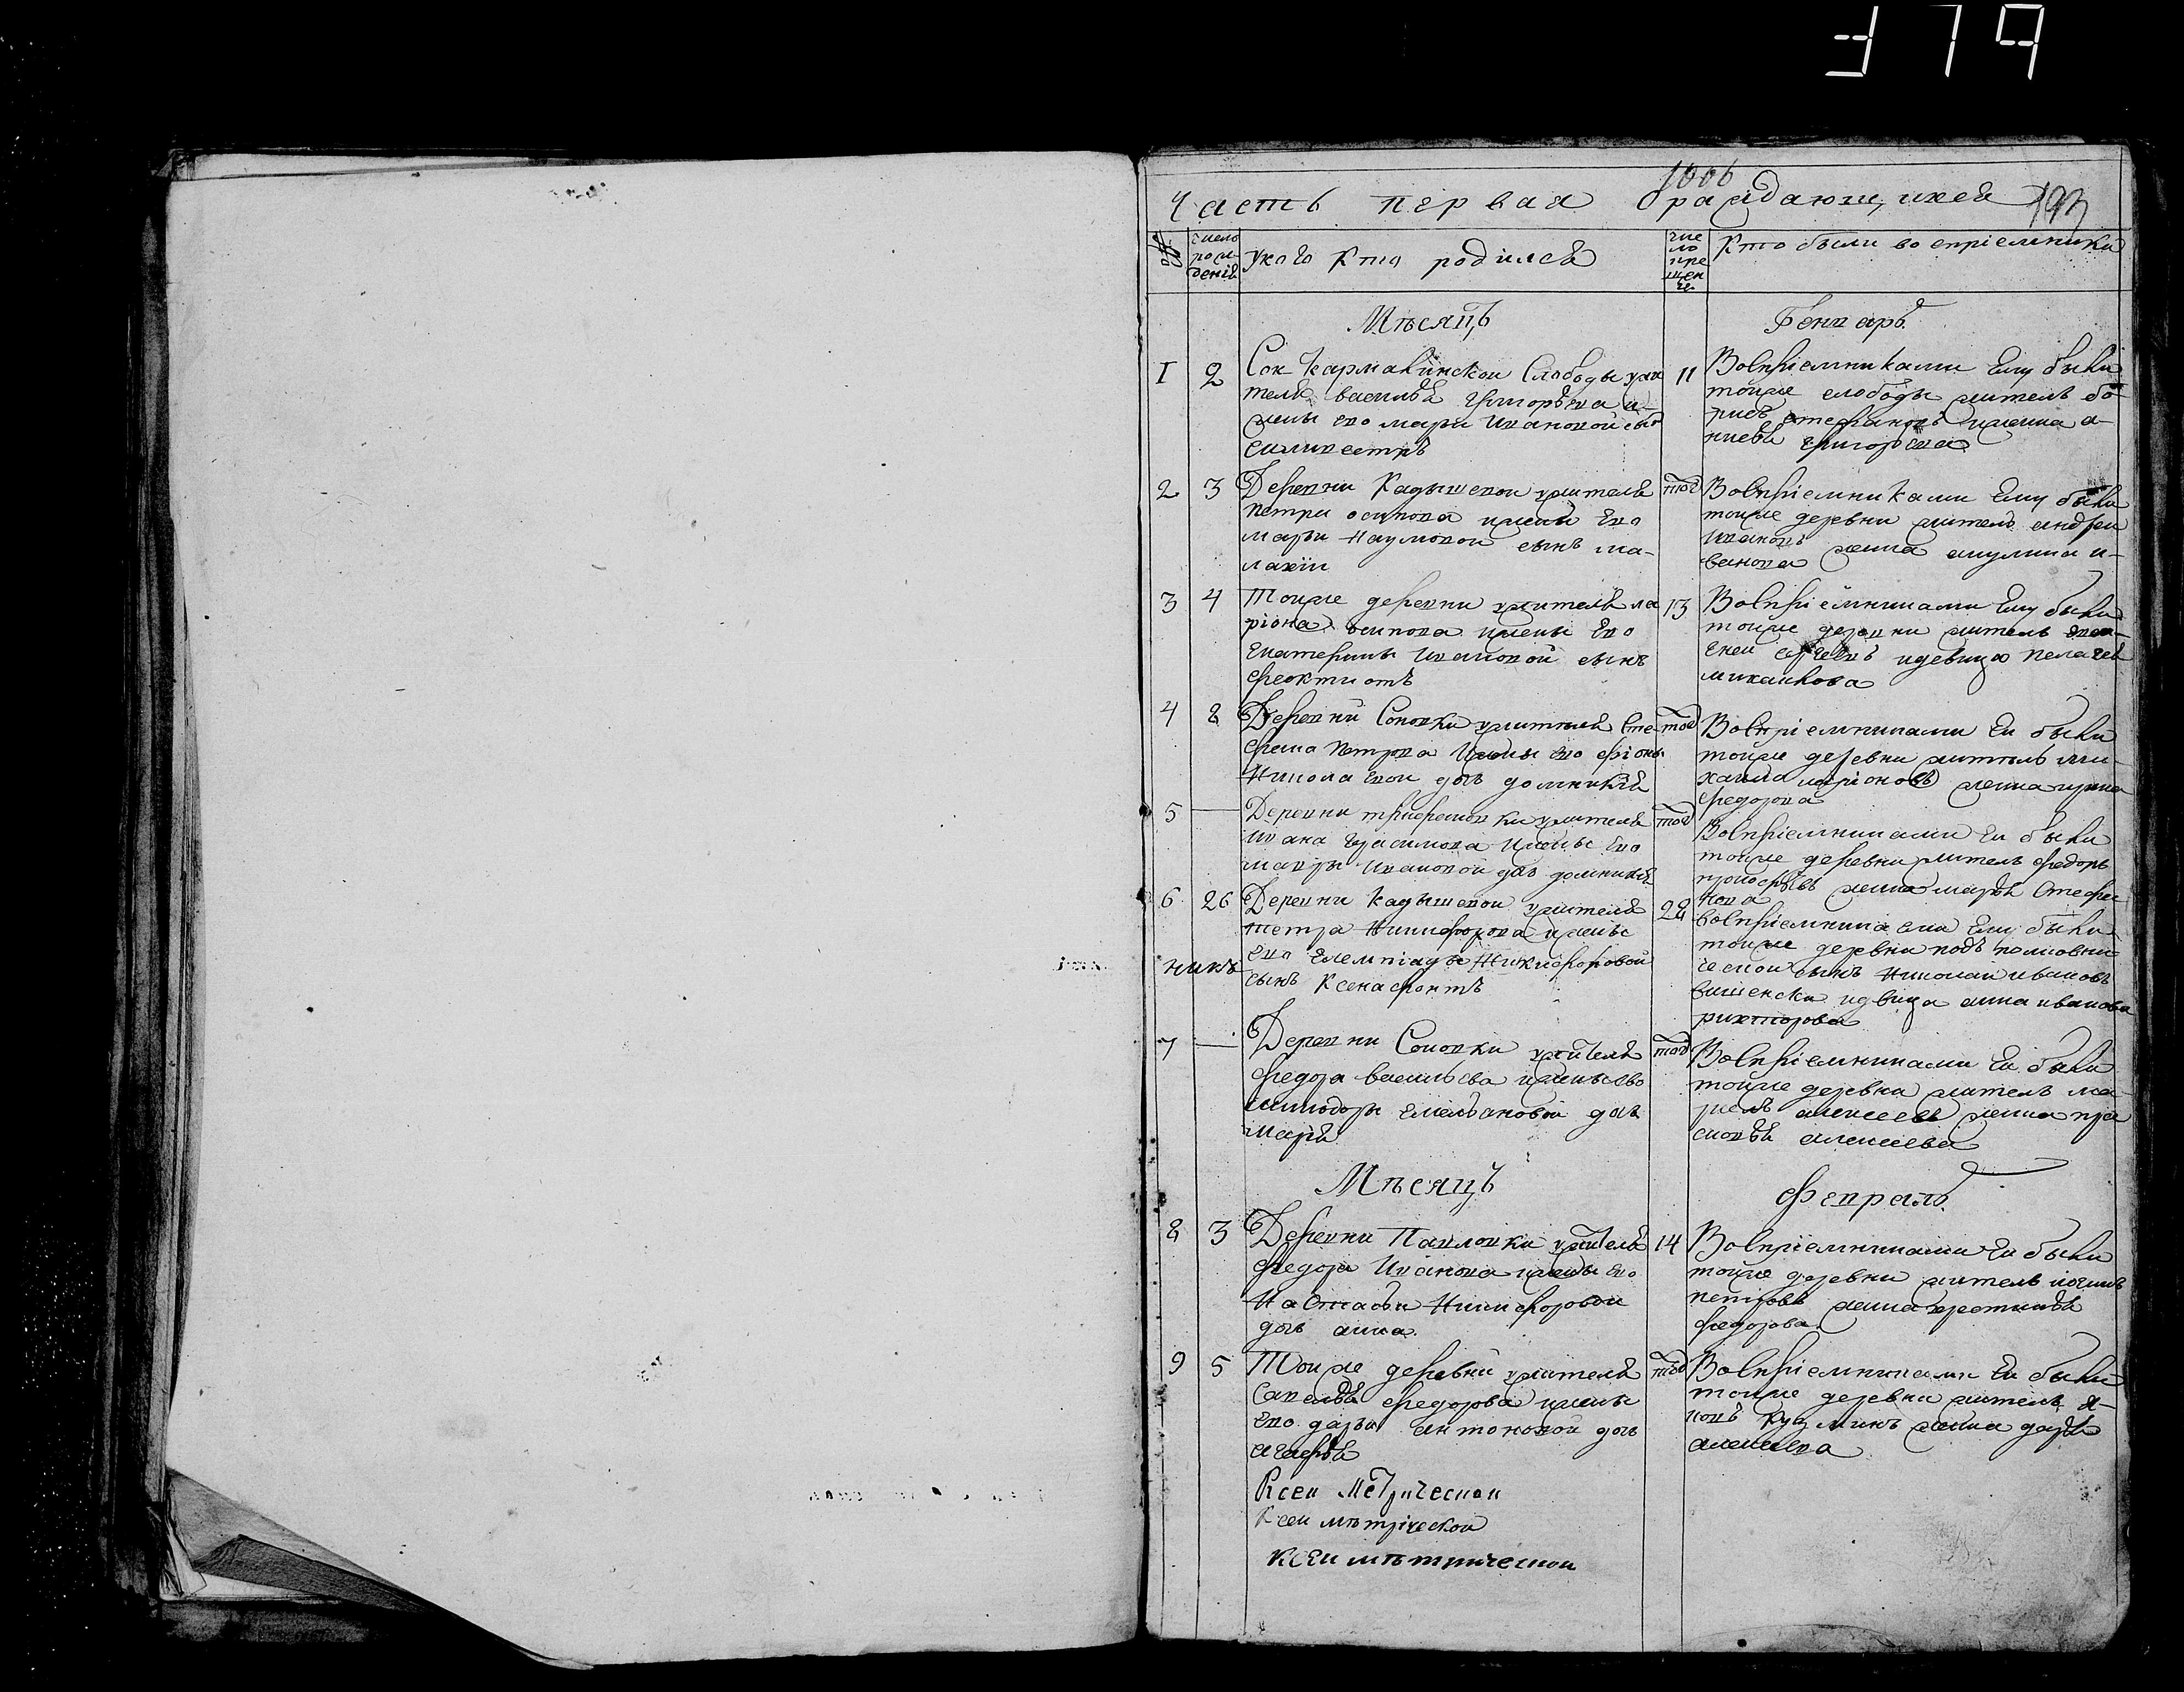 379
1006
Часть первая ораждающихся 193
№
число рождения
Укого Кто родился
число крещения
Кто были воспріемники
Мѣсяцъ Генварь
1 2 Сок Кармалинской Слободы жи
теля василья Григорьева и
жены его марьи Ивановой сынъ
силивестръ
11 Воспріемниками Ему были
тойже слободы житель бо
рисъ стефановъ жена а-
григорьева
2 3 Деревни Кадышевой жителя
петра осипова ижены Его
марьи Наумовой сынъ ма-
лахіи
тог Воспріемниками Ему были
тойже деревни житель андреи
Ивановъ жена акулина и-
ванова
3 4 Тойже деревни жителя ла
ріона осипова ижены Его
Екатерины Ивановой сынъ
феоктистъ
13 Воспріемниками Ему были
тойже деревни житель
сергеевъ идевица пелагея
михаилова
4 8 Деревни Соновки жителя Сте
фана Петрова Ижены его фіоны
Николаевой дочь домникія
тог Воспріемниками Еи были
тойже деревни житель ми-
хаила ларіоновъ жена ирина
федорова
5 Деревни трифановки жителя
Ивана Герасимова Ижены Его
мавры Ивановой дочь домникія
тог Воспріемниками Еи были
тойже деревни житель федоръ
прокофьевъ жена марья Стефа
нова
6 26 Деревни Кадышевой жителя
петра Никифорова ижены
Его Елемпіады Никифоровой
сынъ Ксенафонтъ
никъ
28 Воспріемниками Ему были
тойже деревни подъ полковни
ческой сынъ Николаи ивановъ
вишенски идевица анна иванова
рихторова
7 Деревни Соновки жителя
федора васильева ижены Ево
минодоры Емельановой дочь
марія
тог Воспріемниками Еи были
тойже деревни житель ма-
алексеевъ жена пра
сковья алексеева
Мѣсяцъ Февраль
8 3 Деревни Павловки жителя
федора Иванова ижены Его
Настасьи Никифоровой
дочь анна.
14 Воспріемниками Еи были
тойже деревни житель
петровъ жена
федорова
9 5 Тойже деревни жителя
Савелья федорова ижены
Его дарьи антоновой дочь
агафья
тог Воспріемниками Еи были
тойже деревни житель я-
ковъ Кузминъ жена дарья
алексеева
Ксеи метрической
Ксеи мѣтрической
Ксеи мѣтрической